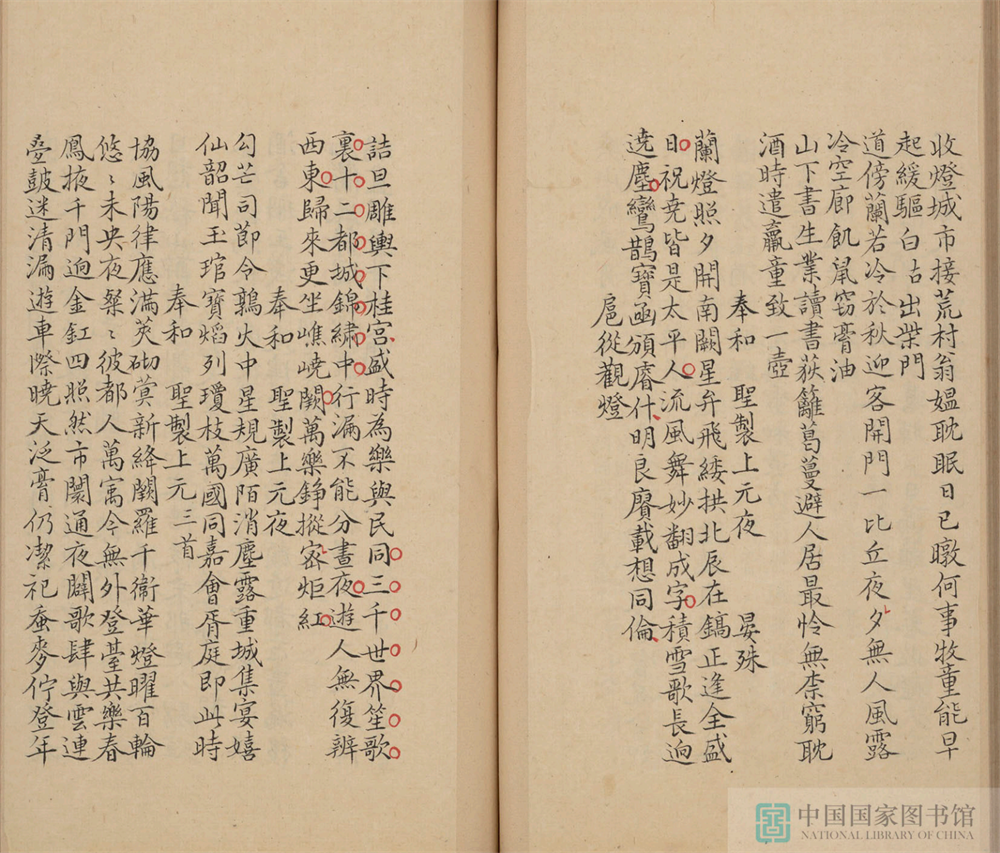 收燈城市接荒村翁媼耽眠日已暾何事牧童能早
起緩驅白牯出柴門
道傍蘭若冷於秋迎客開門一比丘夜夕無人風露
冷空廊飢鼠窃膏油
山下書生業讀書荻籬葛蔓避人居最怜無柰窮耽
酒時遣羸童致一壺
奉和 聖製上元夜 晏殊
蘭燈照夕開南闕星弁飛緌拱北辰在鎬正逢全盛
日祝尭皆是太平人流風舞妙翻成字積雪歌長迥
遶塵鸞鵲寶函頒睿什明良賡載想同倫
扈從觀燈
詰旦雕輿下桂宮盛時為樂與民同三千世界笙歌
裏十二都城錦繡中行漏不能分晝夜遊人無復辨
西東歸來更坐嶕嶢闕萬樂錚摐密炬紅
奉和 聖製上元夜
勾芒司節令鶉火中星規廣陌消塵露重城集宴嬉
仙韶聞玉琯寶熖列瓊枝萬國同嘉會胥庭即此時
奉和 聖製上元三首
協風陽律應滿莢砌蓂新絳闕羅千衛華燈曜百輪
悠〻未央夜粲〻彼都人萬寓今無外登臺共樂春
鳳掖千門迥金釭四照然市闤通夜闢歌肆與雲連
疊皷迷清漏遊車際曉天泛膏仍潔祀蚕麥佇登年
中国国家图书馆
NATIONAL LIBRARY OF CHINA